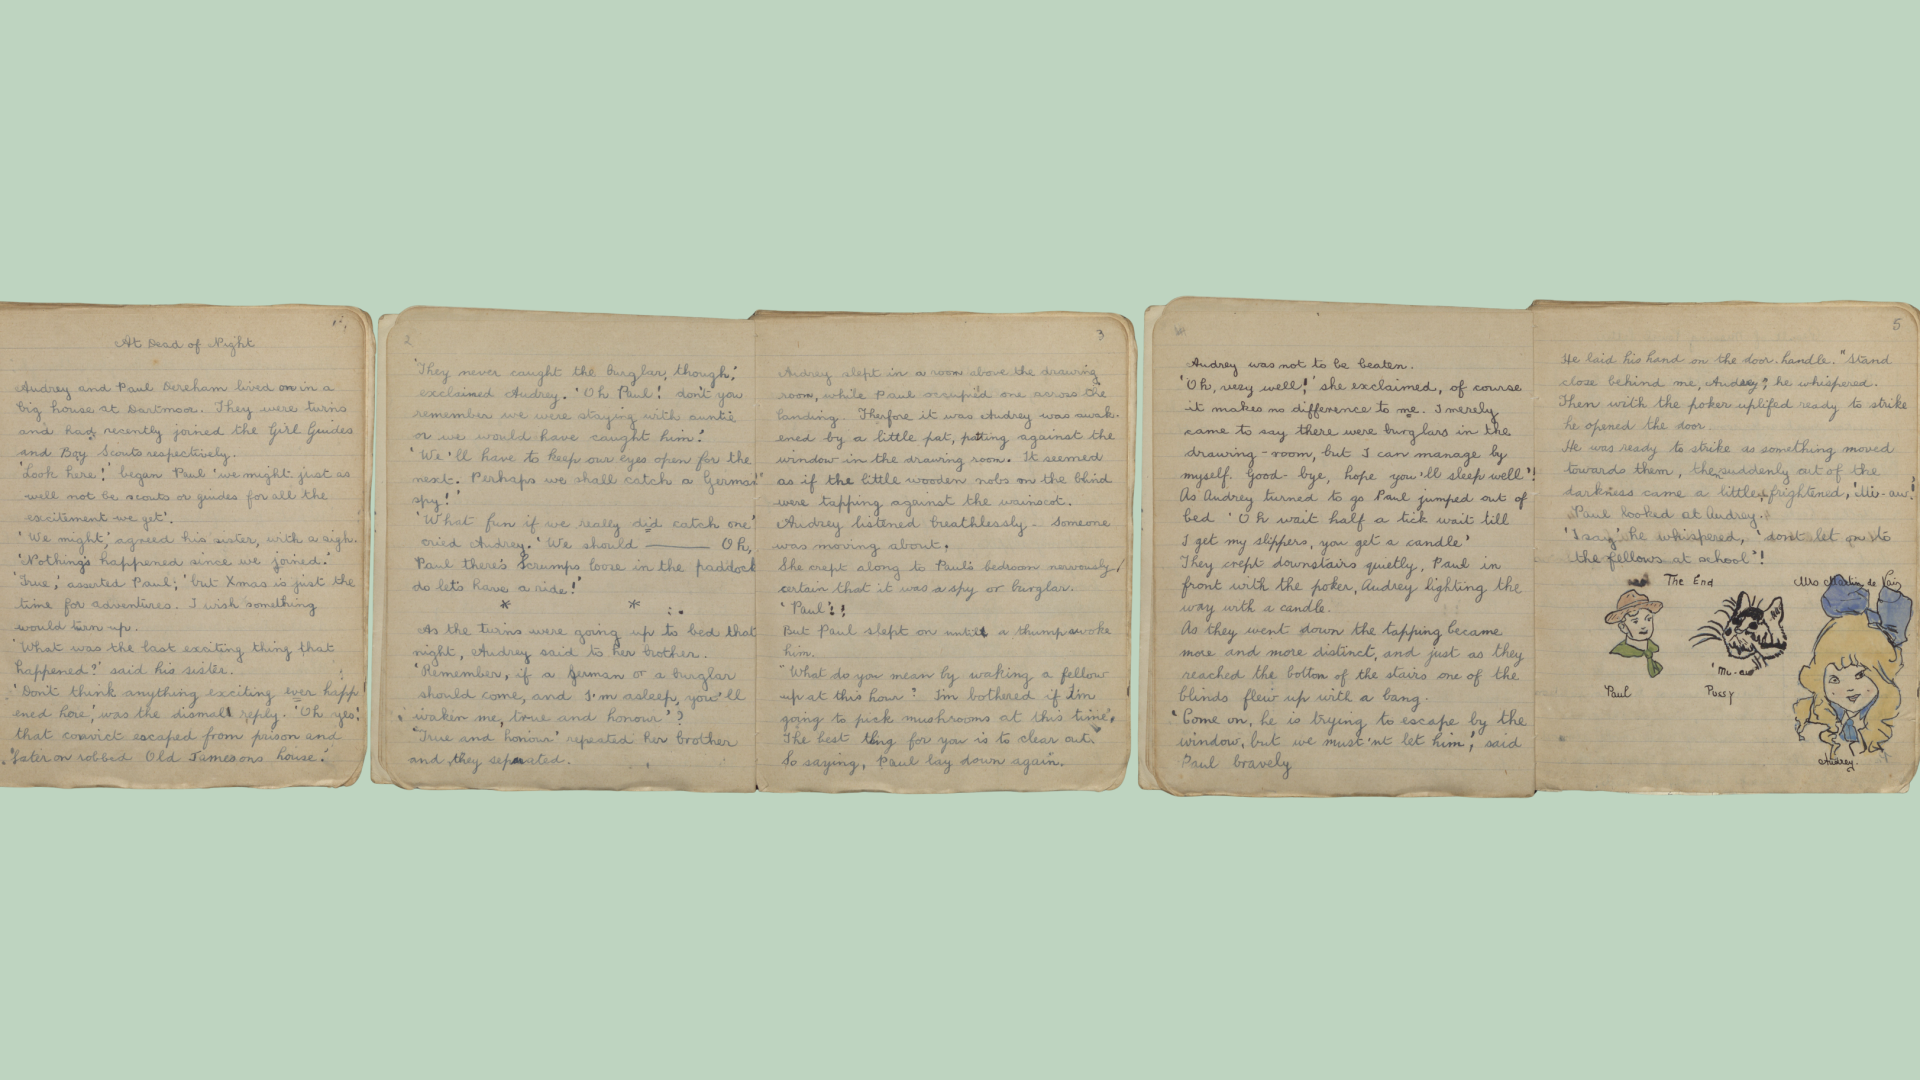 1.
At Dead of Night
Audrey and Paul Dereham lived on in a
big house at Dartmoor. They were turns
and had recently joined the Girl Guides
and Boy Scouts respectively.
'Look here!' began Paul 'we might just as
well not be scouts or guides for all the
excitement we get'.
'We might,' agreed his sister, with a sigh.
'Nothing's happened since we joined.'
'True,' asserted Paul; 'but Xmas is just the
time for adventures. I wish something
would turn up.
'What was the last exciting thing that
happened?' said his sister.
'Don't think anything exciting ever happ
ened here,' was the dismal reply. 'Oh yes!
that convict escaped from prison and
later on robbed Old Jamesons house.'
2
'They never caught the burglar, though,'
exclaimed Audrey. 'Oh Paul! don't you
remember we were staying with auntie
or we would have caught him.'
'We'll have to keep our eyes open for the
next. Perhaps we shall catch a German
spy!'
'What fun if we really did catch one'
cried Audrey. 'We should —— Oh,
Paul there's Scrumps loose in the paddock
do let's have a ride!'
* *
As the turns were going up to bed that
night, Audrey said to her brother.
'Remember, if a German or a burglar
should come, and I'm asleep, you'll
waken me, true and honour'?
'True and honour' repeated her brother
and they separated.
3
Audrey slept in a room above the drawing
room, while Paul occupied one across the
landing. Therfore it was Audrey was awak-
ened by a little pat, patting against the
window in the drawing room. It seemed
as if the little wooden nobs on the blind
were tapping against the wainscot.
Audrey listened breathlessly - someone
was moving about.
She crept along to Paul's bedroom nervously
certain that it was a spy or burglar.
'Paul'!!
But Paul slept on until a thump awoke
him.
"What do you mean by waking a fellow
up at this hour? I'm bothered if I'm
going to pick mushrooms at this time,
The best thing for you is to clear out.
So saying, Paul lay down again.
Audrey was not to be beaten.
'Oh, very well!' she exclaimed, of course
it makes no difference to me. I merely
came to say there were burglars in the
drawing-room, but I can manage by
myself. Good-bye, hope you'll sleep well'!
As Audrey turned to go Paul jumped out of
bed 'Oh wait half a tick wait till
I get my slippers, you get a candle'
They crept downstairs quietly, Paul in
front with the poker, Audrey lighting the
way with a candle.
As they went down the tapping became
more and more distinct, and just as they
reached the bottom of the stairs one of the
blinds flew up with a bang.
'Come on, he is trying to escape by the
window, but we must'nt let him,' said
Paul bravely
5
He laid his hand on the door-handle. "Stand
close behind me, Audrey, he whispered.
Then with the poker uplifed ready to strike
he opened the door.
He was ready to strike as something moved
towards them, the suddenly out of the
darkness came a little, frightened, 'Mi-aw!
Paul looked at Audrey.
'I say' he whispered, 'don't let on to
the fellows at school'!
The End
Paul
'Mi-aw
Pussy
Audrey.